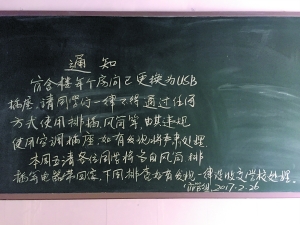 通知
宿舍楼每个房间已更换为USB
插座,请同学们一律不得通过任何
方式使用排插,风筒等,由其违规
使用空调插座,如有发现将严肃处理.
本周五请各位同学将自风筒排
插等电器带回家,下周排查如有发现一律没收交学校处理.
宿管组.2017.2.26